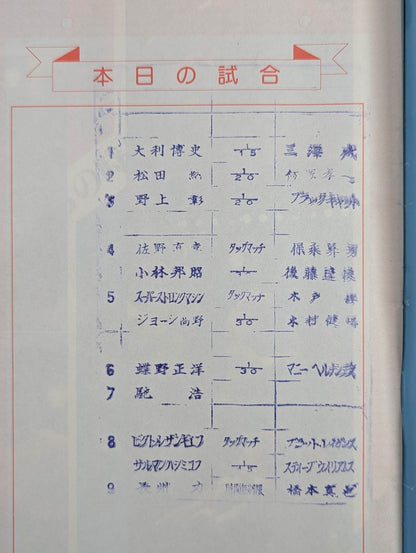 本日の試合
1 大利博史 1/15 三澤威
2 松田納 1/20
3 野上彰 1/20 ブラックキャット
4 佐野直喜 タッグマッチ 保永昇男
小林邦昭 後藤達俊
5 スーパーストロングマシン タッグマッチ 木戸修
ジョージ高野 1/30 木村健悟
6 蝶野正洋 1/30 マニー ヘルナンデス
7 馳浩
8 ビクトル・ザンギエフ タッグマッチ
サルマン・ハシミコフ 1/45 スティーブ・ウイリアムス
9 橋本真也